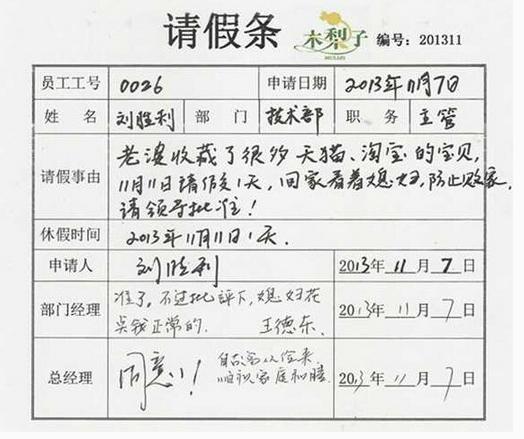 请假条
木梨子
MULLIZI
编号：201311
员工工号 0026 申请日期 2013年11月7日
姓名 刘胜利 部门 技术部 职务 主管
请假事由
老婆收藏了很多天猫、淘宝的宝贝，
11月11日请假1天，回家看着媳妇，防止败家，
请领导批准！
休假时间 2013年11月11日1天.
申请人 刘胜利 2013年11月7日
部门经理
准了，不过批评下，媳妇花
点钱正常的. 王德东. 2013年11月7日
总经理
同意！ 自古客从俭来，
顺祝家庭和睦. 2013年11月7日